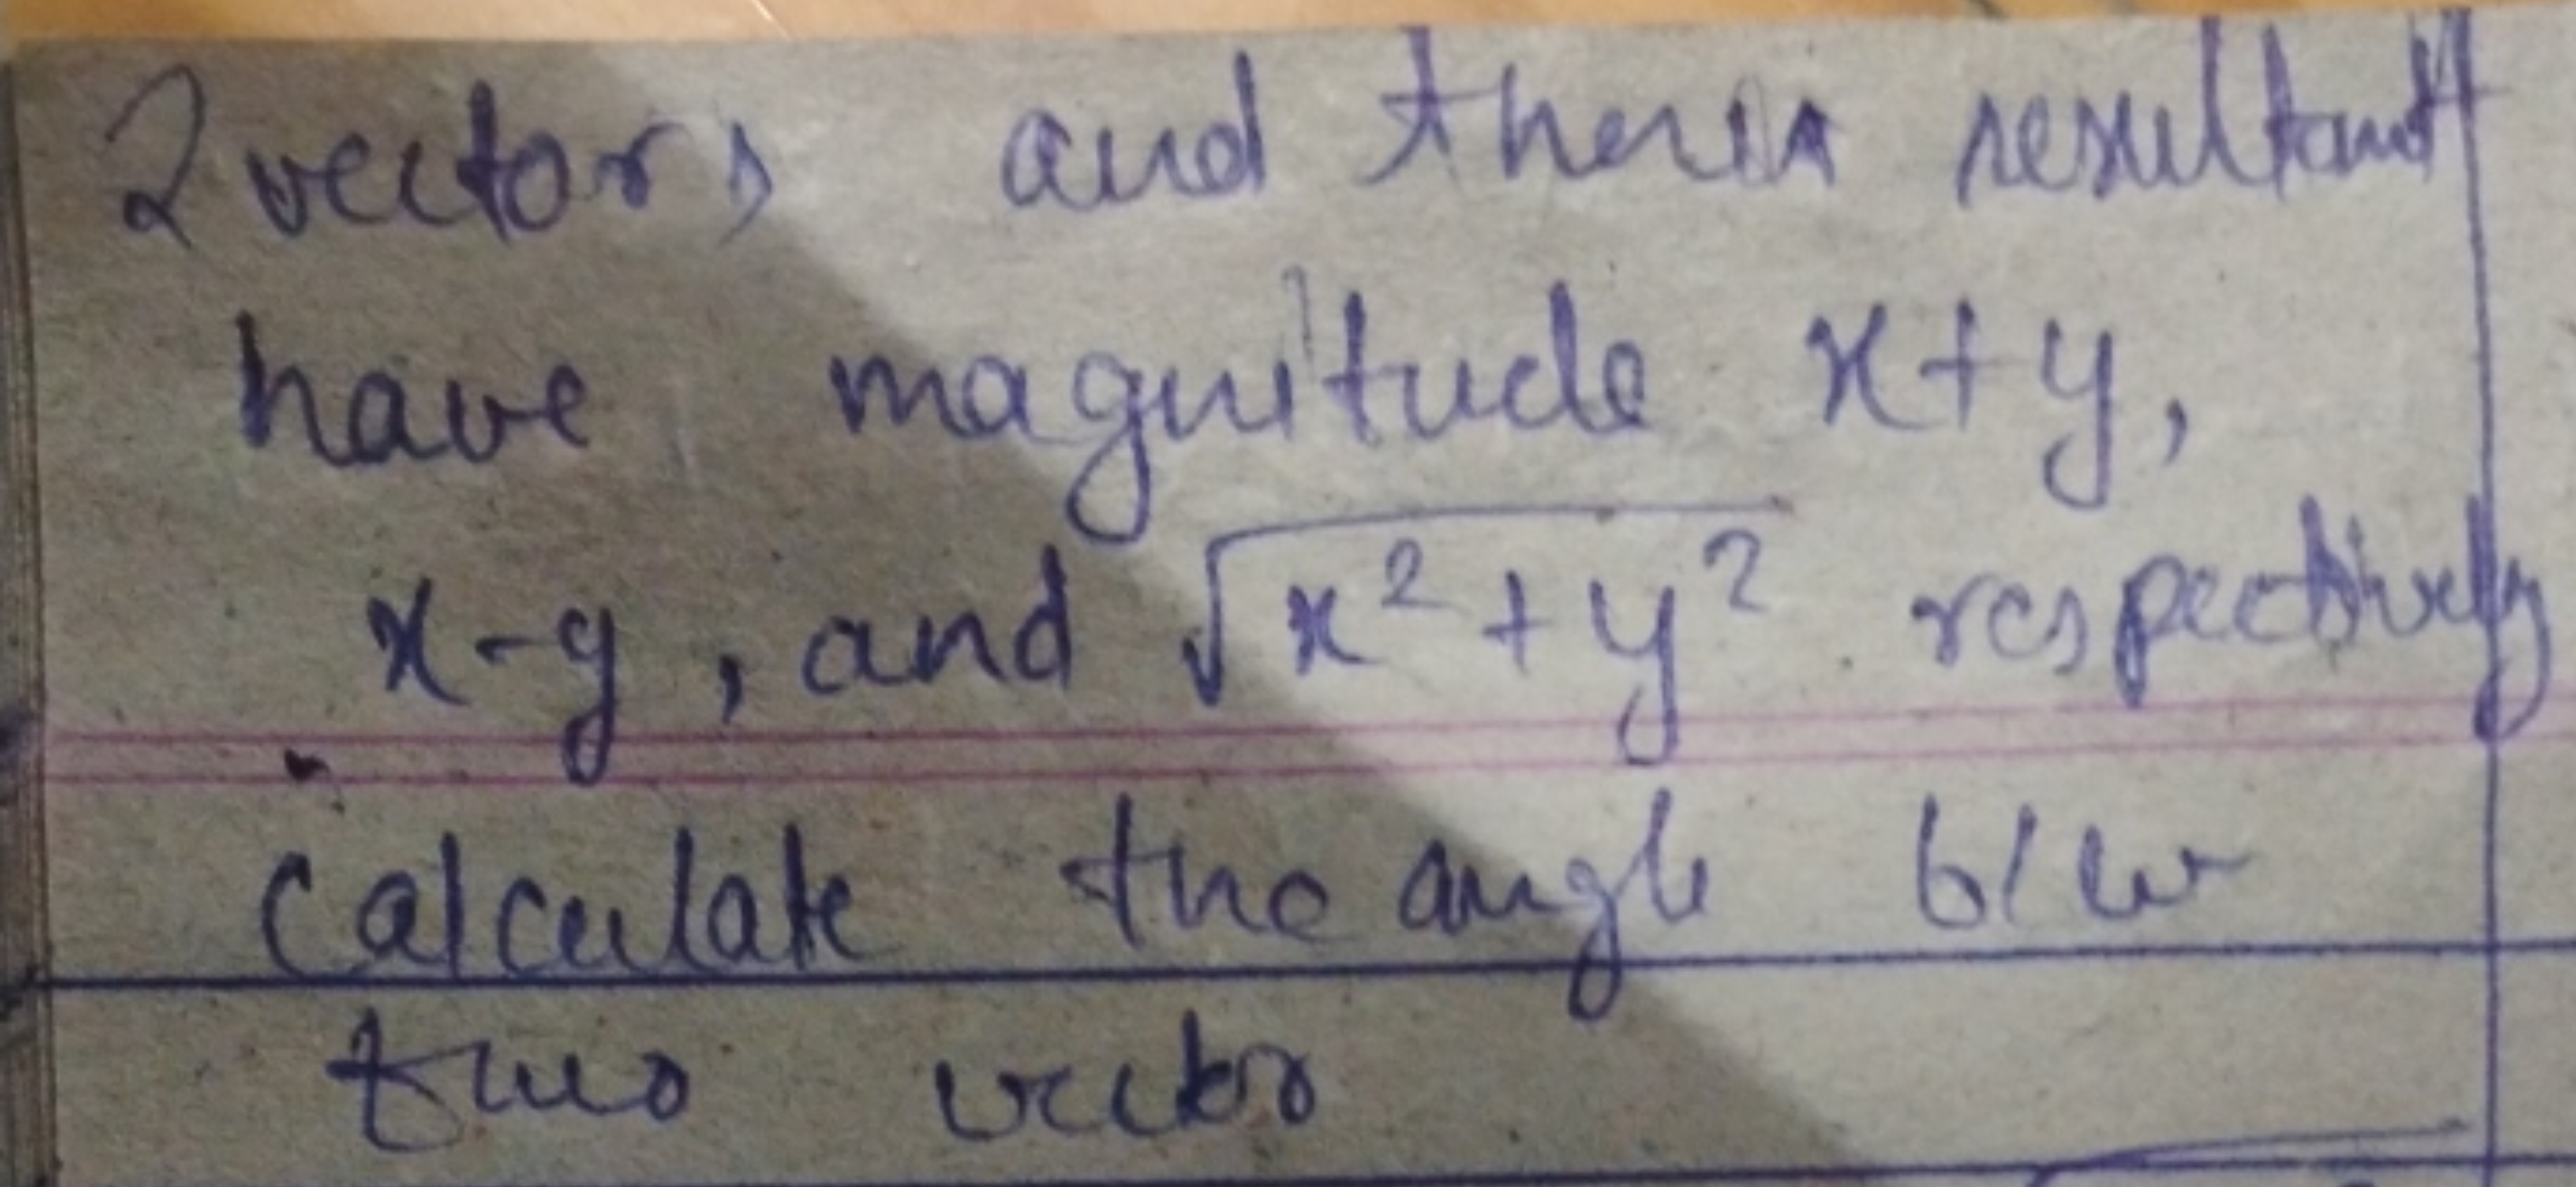 2 vectors and their resultant
have magnitude x+y,
x-y, and √x²+y² respectively
calculate the angle b/w
two vector